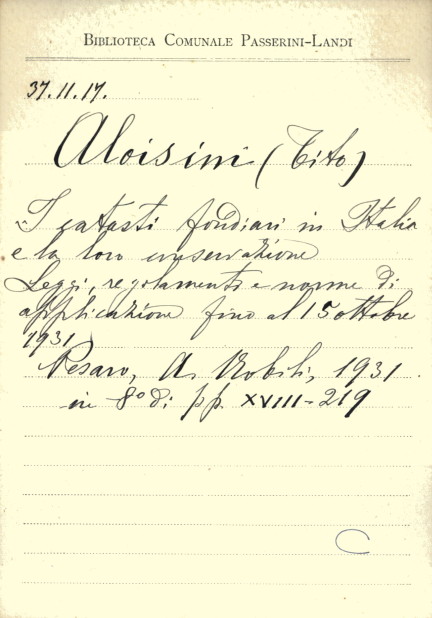 BIBLIOTECA COMUNALE PASSERINI-LANDI
37.II.17.
Aloisini (Tito)
I catasti fondiari in Italia
e la loro conservazione
Leggi, regolamenti e norme di
applicazione fino al 15 ottobre
1931
Pesaro, A. Nobili, 1931
in 8º di pp. XVIII-219
C